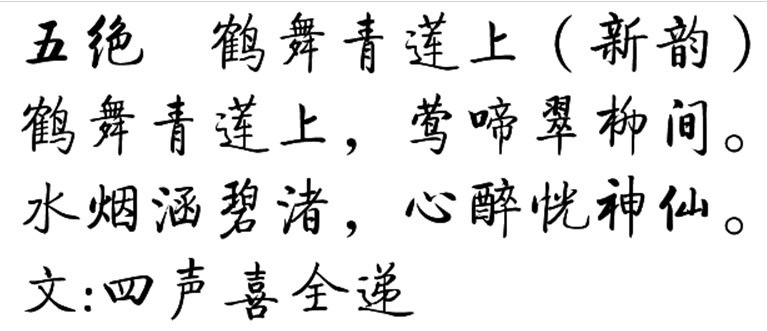 五绝　鹤舞青莲上（新韵）
鹤舞青莲上，莺啼翠柳间。
水烟涵碧渚，心醉恍神仙。
文:四声喜全递